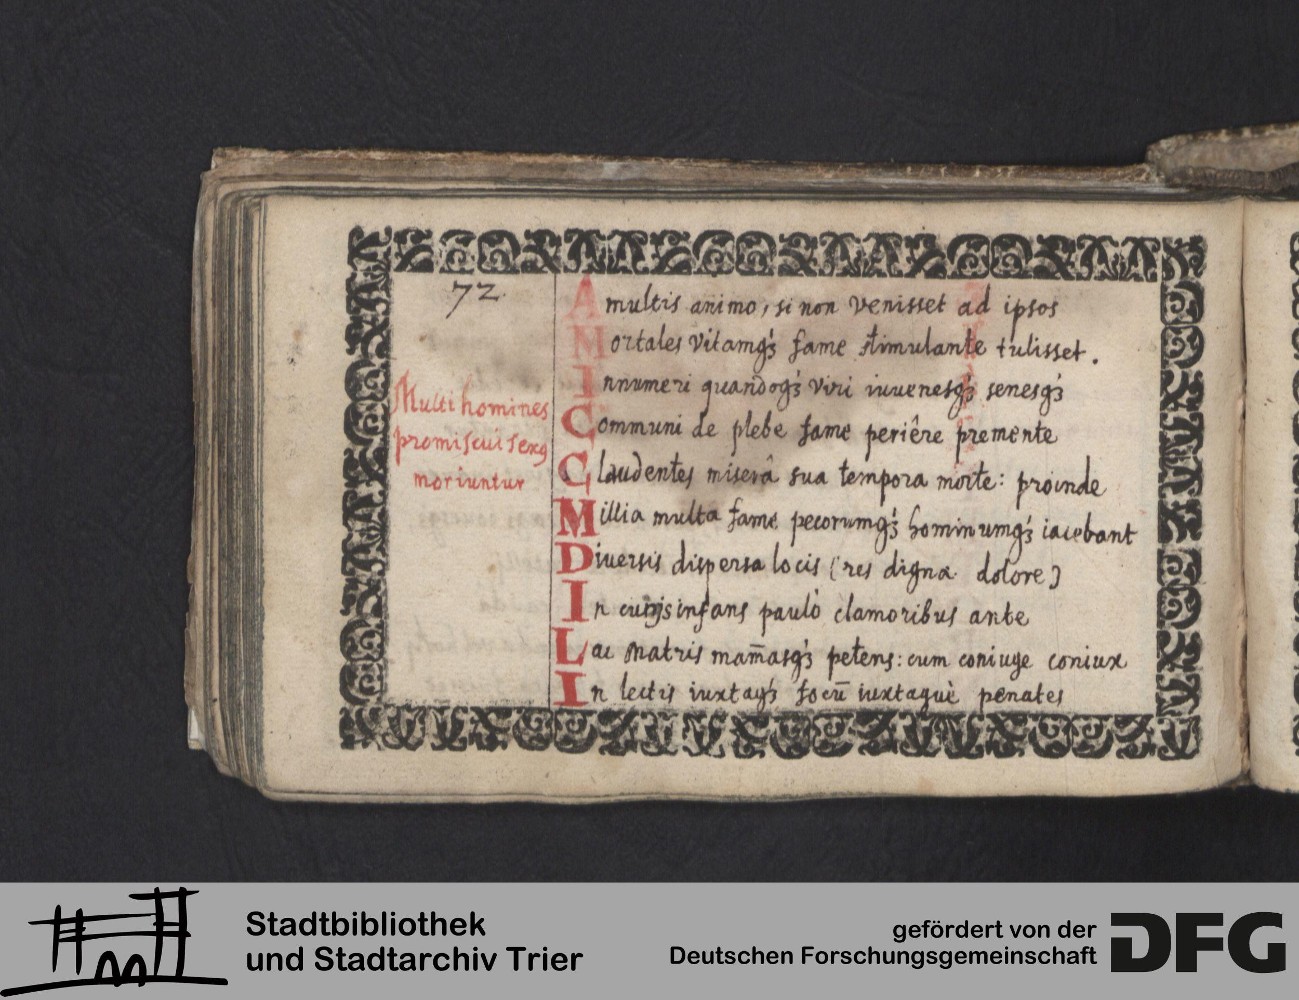 72.
Multi homines
promiscui sexus
moriuntur
A multis animo, si non venisset ad ipsos
Mortales vitamq́ fame stimulante tulisset.
Innumeri quandoq́ viri iuuenesq́ senesq́
Communi de plebe fame periêre premente
Claudentes miserâ sua tempora morte: proinde
Millia multa fame pecorumq́ hominumq́ iacebant
Diuersis dispersa locis (res digna dolore)
In cunis infans paulò clamoribus ante
Lac matris mam̄asq́ petens: cum coniuge coniux
In lectis iuxtaq́ focū iuxtaquè penates
Stadtbibliothek
und Stadtarchiv Trier
gefördert von der
Deutschen Forschungsgemeinschaft
DFG